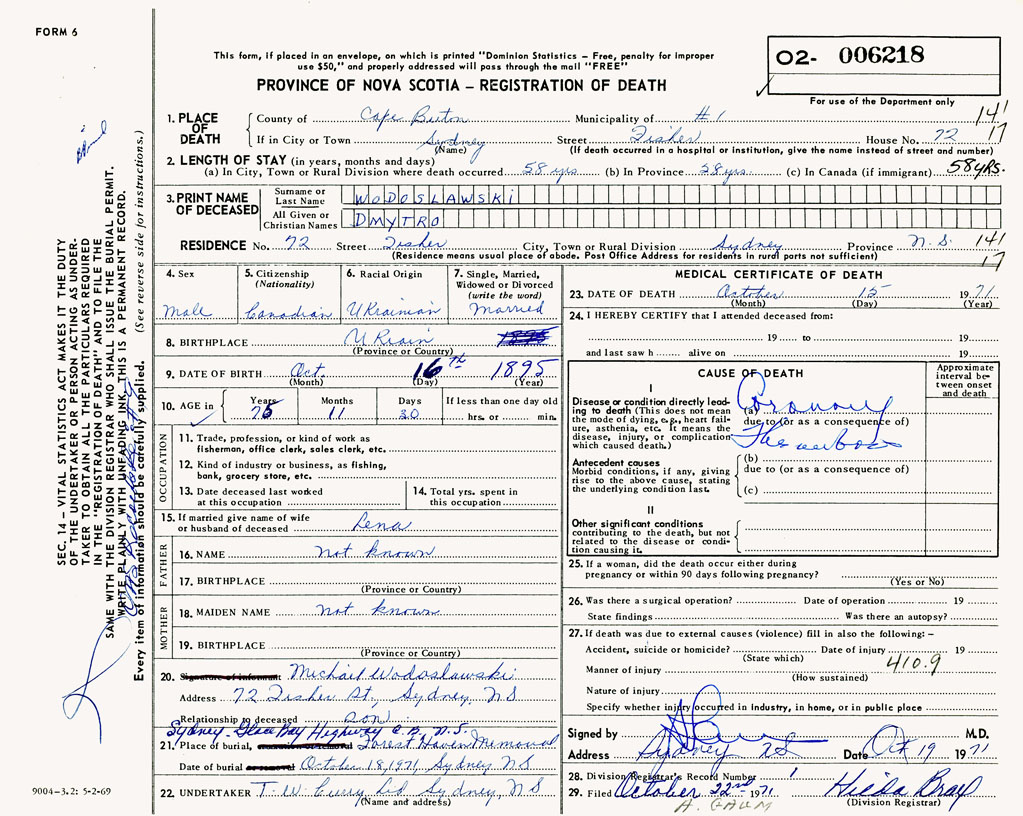 FORM 6
This form, if placed in an envelope, on which is printed "Dominion Statistics – Free, penalty for improper
use $50," and properly addressed will pass through the mail "FREE"
02- 006218
For use of the Department only
PROVINCE OF NOVA SCOTIA – REGISTRATION OF DEATH
1. PLACE OF DEATH
County of Cape Breton Municipality of #1 14'
If in City or Town Sydney Street Fisher House No. 72 17
(Name) (If death occurred in a hospital or institution, give the name instead of street and number)
2. LENGTH OF STAY (in years, months and days)
(a) In City, Town or Rural Division where death occurred 58 yrs (b) In Province 58 yrs. (c) In Canada (if immigrant) 58 YRS.
3. PRINT NAME OF DECEASED
Surname or Last Name WODOSLAWSKI
All Given or Christian Names DMYTRO
RESIDENCE No. 72 Street Fisher City, Town or Rural Division Sydney Province N.S. 14'
(Residence means usual place of abode. Post Office Address for residents in rural parts not sufficient) 17
4. Sex
Male
5. Citizenship (Nationality)
Canadian
6. Racial Origin
Ukrainian
7. Single, Married, Widowed or Divorced (write the word)
Married
8. BIRTHPLACE Ukrain
(Province or Country)
9. DATE OF BIRTH Oct. 16th 1895
(Month) (Day) (Year)
10. AGE in Years Months Days If less than one day old
75 11 30 hrs. or min.
OCCUPATION
11. Trade, profession, or kind of work as
fisherman, office clerk, sales clerk, etc.
12. Kind of industry or business, as fishing,
bank, grocery store, etc.
13. Date deceased last worked
at this occupation
14. Total yrs. spent in
this occupation
15. If married give name of wife
or husband of deceased Lena
FATHER
16. NAME Not known
17. BIRTHPLACE
(Province or Country)
MOTHER
18. MAIDEN NAME Not known
19. BIRTHPLACE
(Province or Country)
20. Signature of informant Michail Wodoslawski
Address 72 Fisher St, Sydney, NS
Relationship to deceased Son
Sydney-Glace Bay Highway C.B. N.S.
21. Place of burial, Forest Haven Memorial
Date of burial October 18, 1971, Sydney NS
22. UNDERTAKER T. W. Curry Ltd Sydney, NS
(Name and address)
MEDICAL CERTIFICATE OF DEATH
23. DATE OF DEATH October 15 1971
(Month) (Day) (Year)
24. I HEREBY CERTIFY that I attended deceased from:
19 to 19
and last saw h alive on 19
CAUSE OF DEATH
Approximate interval between onset and death
I
Disease or condition directly leading to death (This does not mean the mode of dying, e.g., heart failure, asthenia, etc. It means the disease, injury, or complication which caused death.)
(a) Coronary
due to (or as a consequence of)
Thrombosis
Antecedent causes
Morbid conditions, if any, giving rise to the above cause, stating the underlying condition last.
(b)
due to (or as a consequence of)
(c)
II
Other significant conditions
contributing to the death, but not related to the disease or condition causing it.
25. If a woman, did the death occur either during
pregnancy or within 90 days following pregnancy?
(Yes or No)
26. Was there a surgical operation? Date of operation 19
State findings Was there an autopsy?
27. If death was due to external causes (violence) fill in also the following: –
Accident, suicide or homicide? Date of injury 19
(State which)
Manner of injury 410.9
(How sustained)
Nature of injury
Specify whether injury occurred in Industry, in home, or in public place
Signed by M.D.
Address Sydney NS Date Oct 19 1971
28. Division Registrar's Record Number 1
29. Filed October 22nd 1971 Hilda Bray
(Division Registrar)
SEC. 14 – VITAL STATISTICS ACT MAKES IT THE DUTY
OF THE UNDERTAKER OR PERSON ACTING AS UNDER-
TAKER TO OBTAIN ALL THE PARTICULARS REQUIRED
IN THE "REGISTRATION OF DEATH" AND TO FILE THE
SAME WITH THE DIVISION REGISTRAR WHO SHALL ISSUE THE BURIAL PERMIT.
WRITE PLAINLY WITH UNFADING INK—THIS IS A PERMANENT RECORD.
Every item of information should be carefully supplied. (See reverse side for instructions.)
9004–3.2: 5-2-69